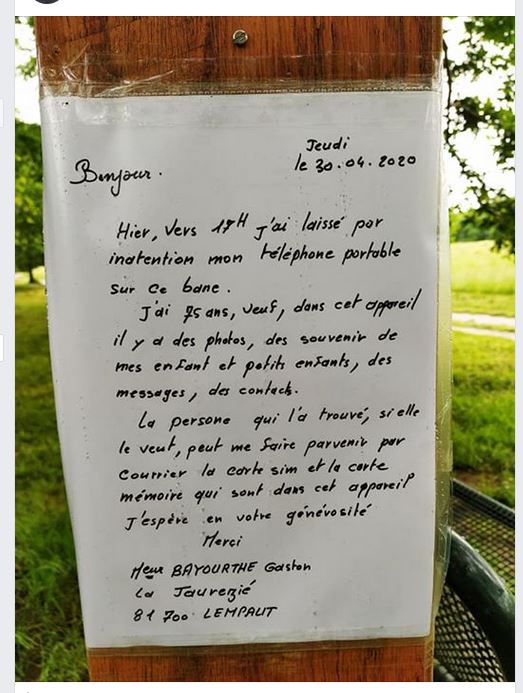 Jeudi
le 30.04.2020
Bonjour.
Hier, vers 17H j'ai laissé par
inatention mon téléphone portable
sur ce banc.
J'ai 75 ans, veuf, dans cet appareil
il y a des photos, des souvenir de
mes enfant et petits enfants, des
messages, des contacts.
La persone qui l'a trouvé, si elle
le veut, peut me faire parvenir par
courrier la carte sim et la carte
mémoire qui sont dans cet appareil
J'espère en votre générosité
Merci
Meur BAYOURTHE Gaston
La Jaurezié
81700 LEMPAUT